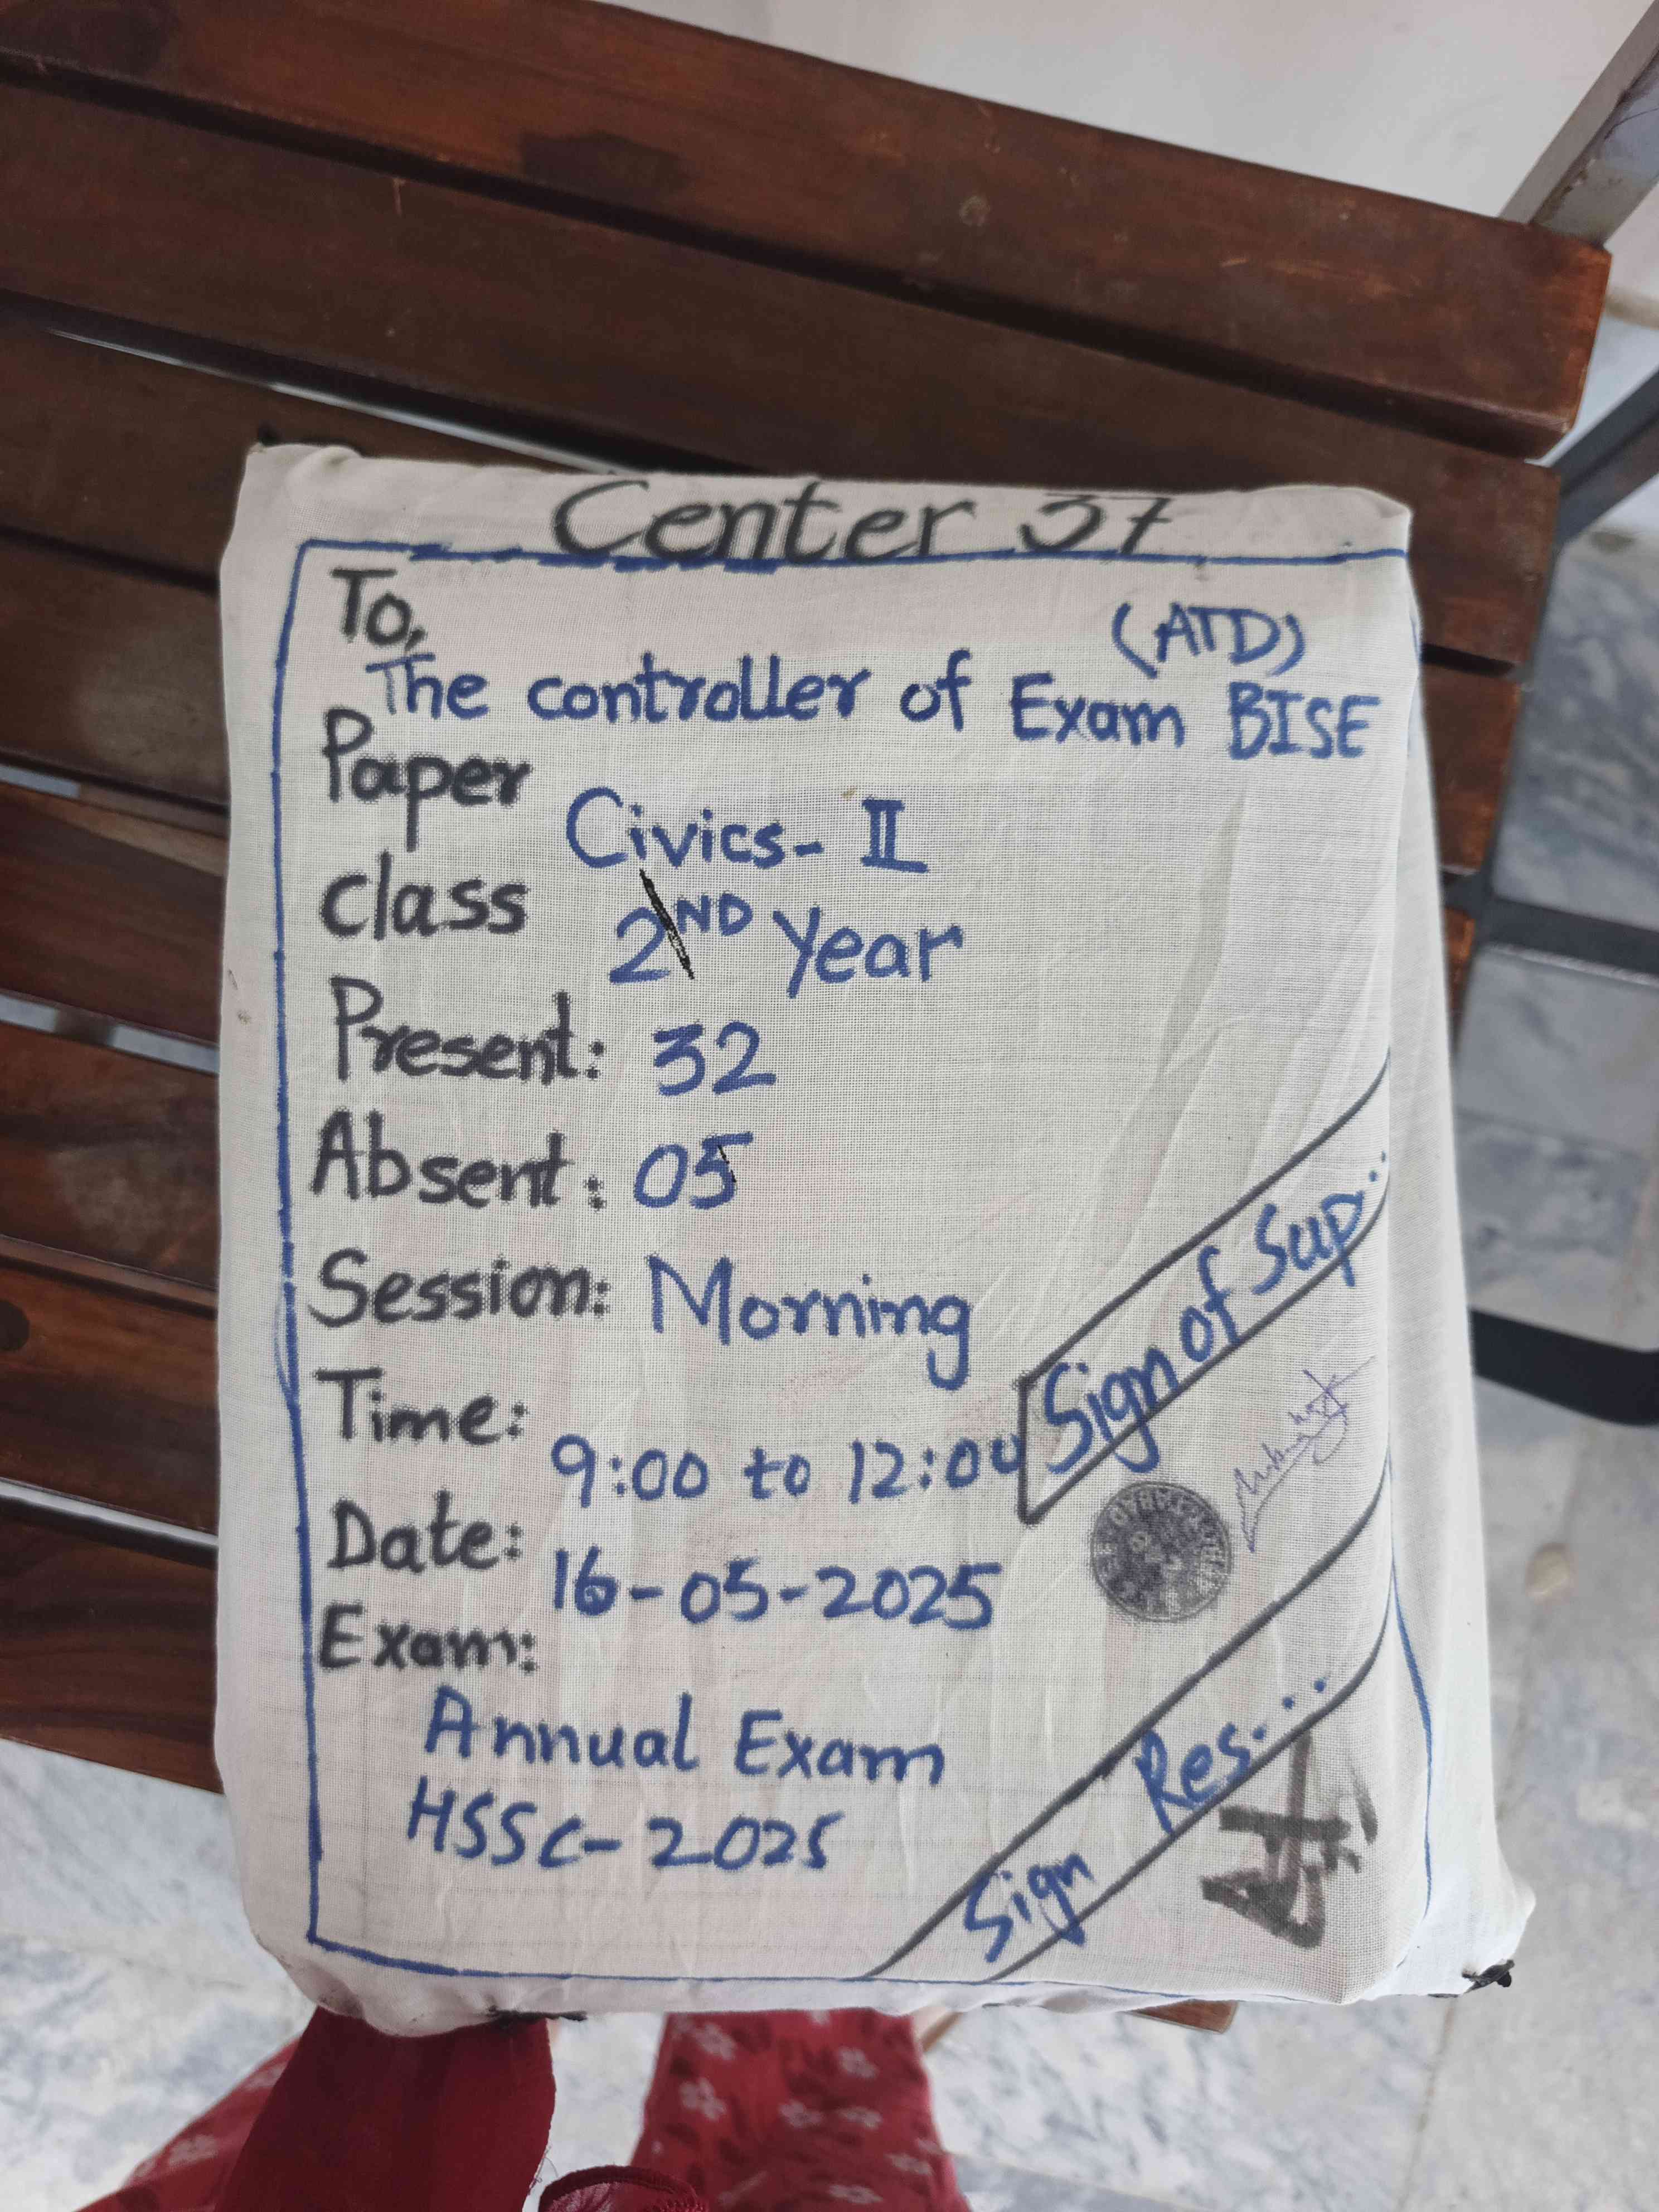 Center 37
To,
(ATD)
The controller of Exam BISE
Paper Civics- II
Class 2ND Year
Present: 32
Absent: 05
Session: Morning
Time: 9:00 to 12:00
Date: 16-05-2025
Exam:
Annual Exam
HSSC-2025
Sign of Sup...
Sign Res....